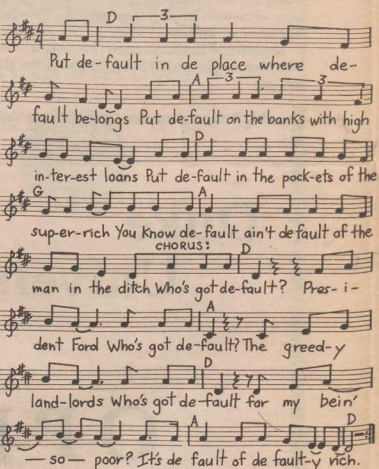 D 3
Put de-fault in de place where de-
A 3 3
fault be-longs Put de-fault on the banks with high
D
in-ter-est loans Put de-fault in the pock-ets of the
G A
sup-er-rich You Know de-fault ain't de fault of the
CHORUS: D
man in the ditch Who's got de-fault? Pres-i-
A
dent Ford Who's got de-fault? The greed-y
D
land-lords Who's got de-fault for my bein'
A D
— so — poor? It's de fault of de fault-y rich.